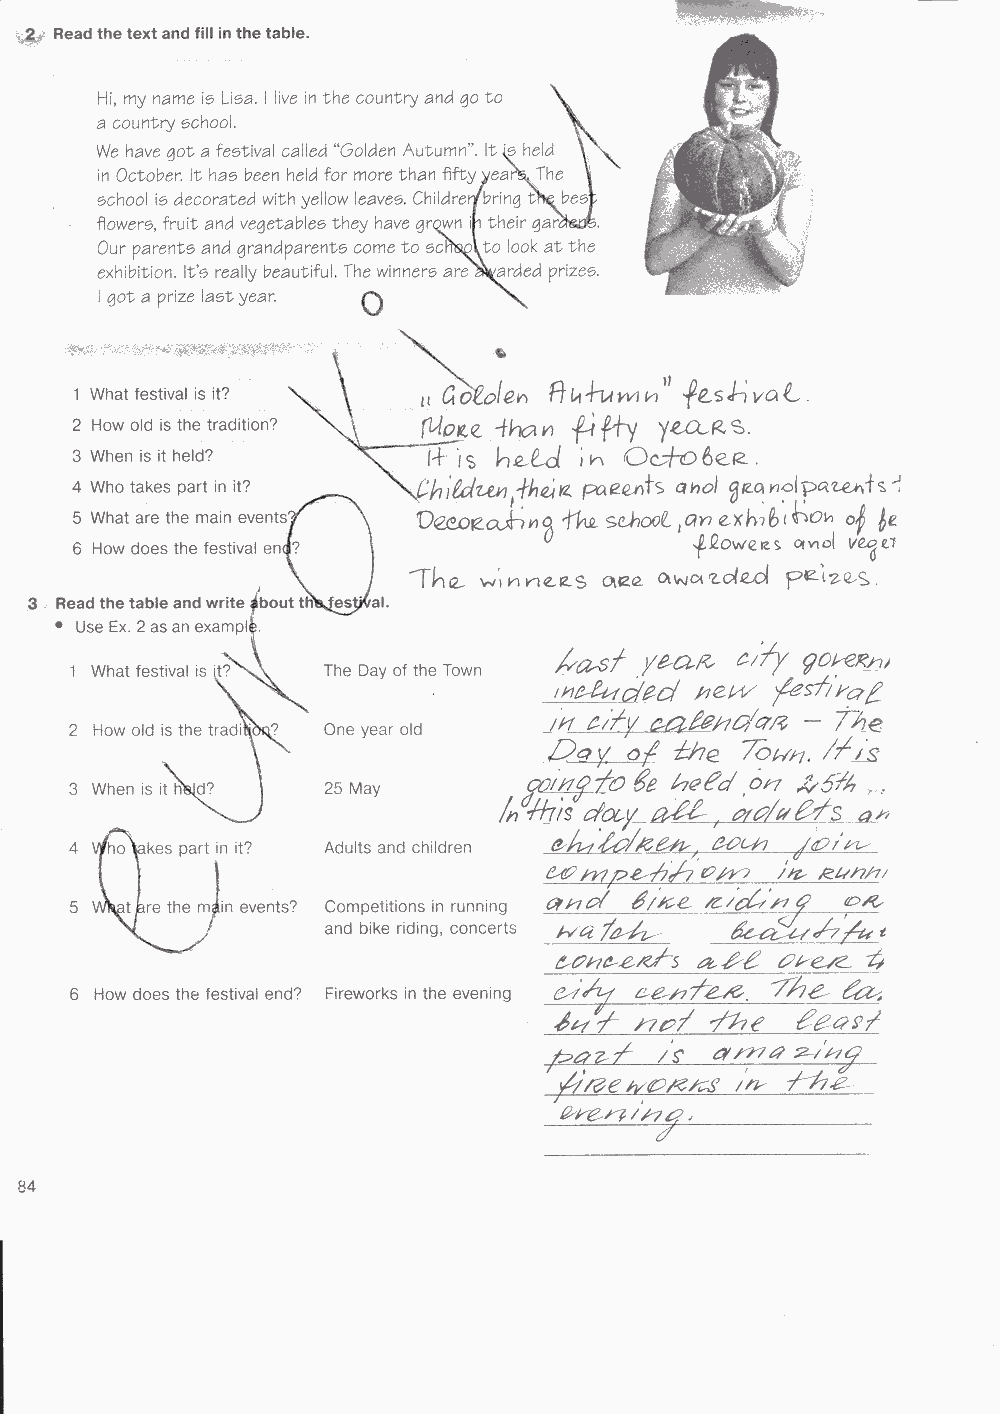 2 Read the text and fill in the table.
Hi, my name is Lisa. I live in the country and go to
a country school.
We have got a festival called "Golden Autumn". It is held
in October. It has been held for more than fifty years. The
school is decorated with yellow leaves. Children bring the best
flowers, fruit and vegetables they have grown in their gardens.
Our parents and grandparents come to school to look at the
exhibition. It's really beautiful. The winners are awarded prizes.
I got a prize last year.
1 What festival is it? „Golden Autumn" festival.
2 How old is the tradition? More than fifty years.
3 When is it held? It is held in October.
4 Who takes part in it? Children, their parents and grandparents
5 What are the main events? Decorating the school, an exhibition of be
flowers and veget
6 How does the festival end? The winners are awarded prizes.
3 Read the table and write about the festival.
• Use Ex. 2 as an example.
1 What festival is it? The Day of the Town
2 How old is the tradition? One year old
3 When is it held? 25 May
4 Who takes part in it? Adults and children
5 What are the main events? Competitions in running
and bike riding, concerts
6 How does the festival end? Fireworks in the evening
Last year city governm
included new festival
in city calendar – The
Day of the Town. It is
going to be held on 25th
In this day all, adults an
children, can join
competition in runni
and bike riding or
watch beautiful
concerts all over t
city center. The la
but not the least
part is amazing
fireworks in the
evening.
84
eurokI.ru